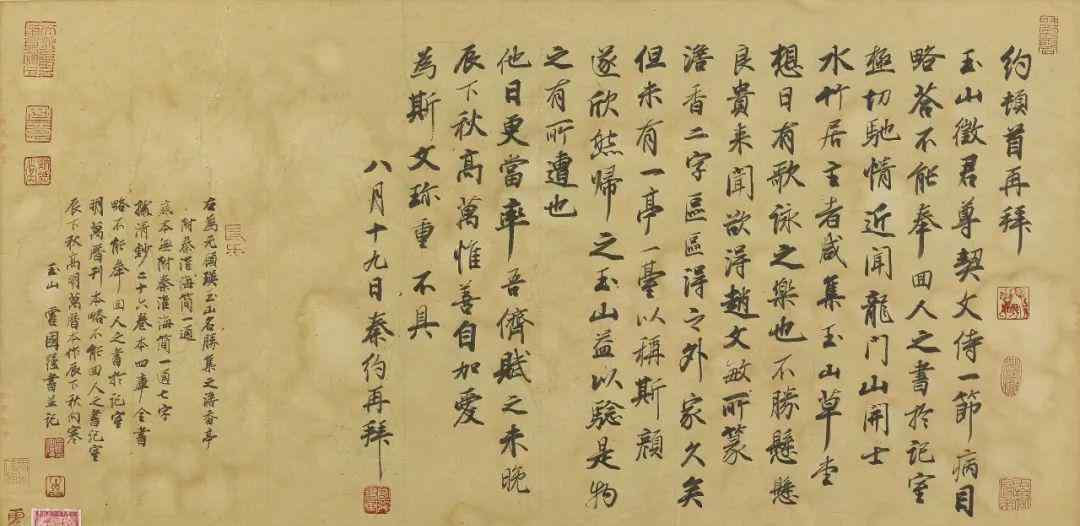 約頓首再拜
玉山徵君尊契丈侍一節病目
略答不能奉回人之書於記室
極切馳情近聞龍門山開士
水竹居主者咸集玉山草堂
想日有歌詠之樂也不勝懸懸
良貴來聞欲得趙文敏所篆
澹香二字區區得之外家久矣
但未有一亭一臺以稱斯顏
遂欣然歸之玉山益以驗是物
之有所遭也
他日更當率吾儕賦之未晚
辰下秋高萬惟善自加愛
為斯文珍重不具
八月十九日秦約再拜
右為元顧瑛玉山名勝集之澹香亭
附秦淮海簡一通
底本無附秦淮海簡一通七字
據清鈔二十六卷本四庫全書
略不能奉回人之書於記室
明萬曆刊本略不能回人之書記室
辰下秋高明萬曆本作辰下秋向寒
玉山 國強書並記